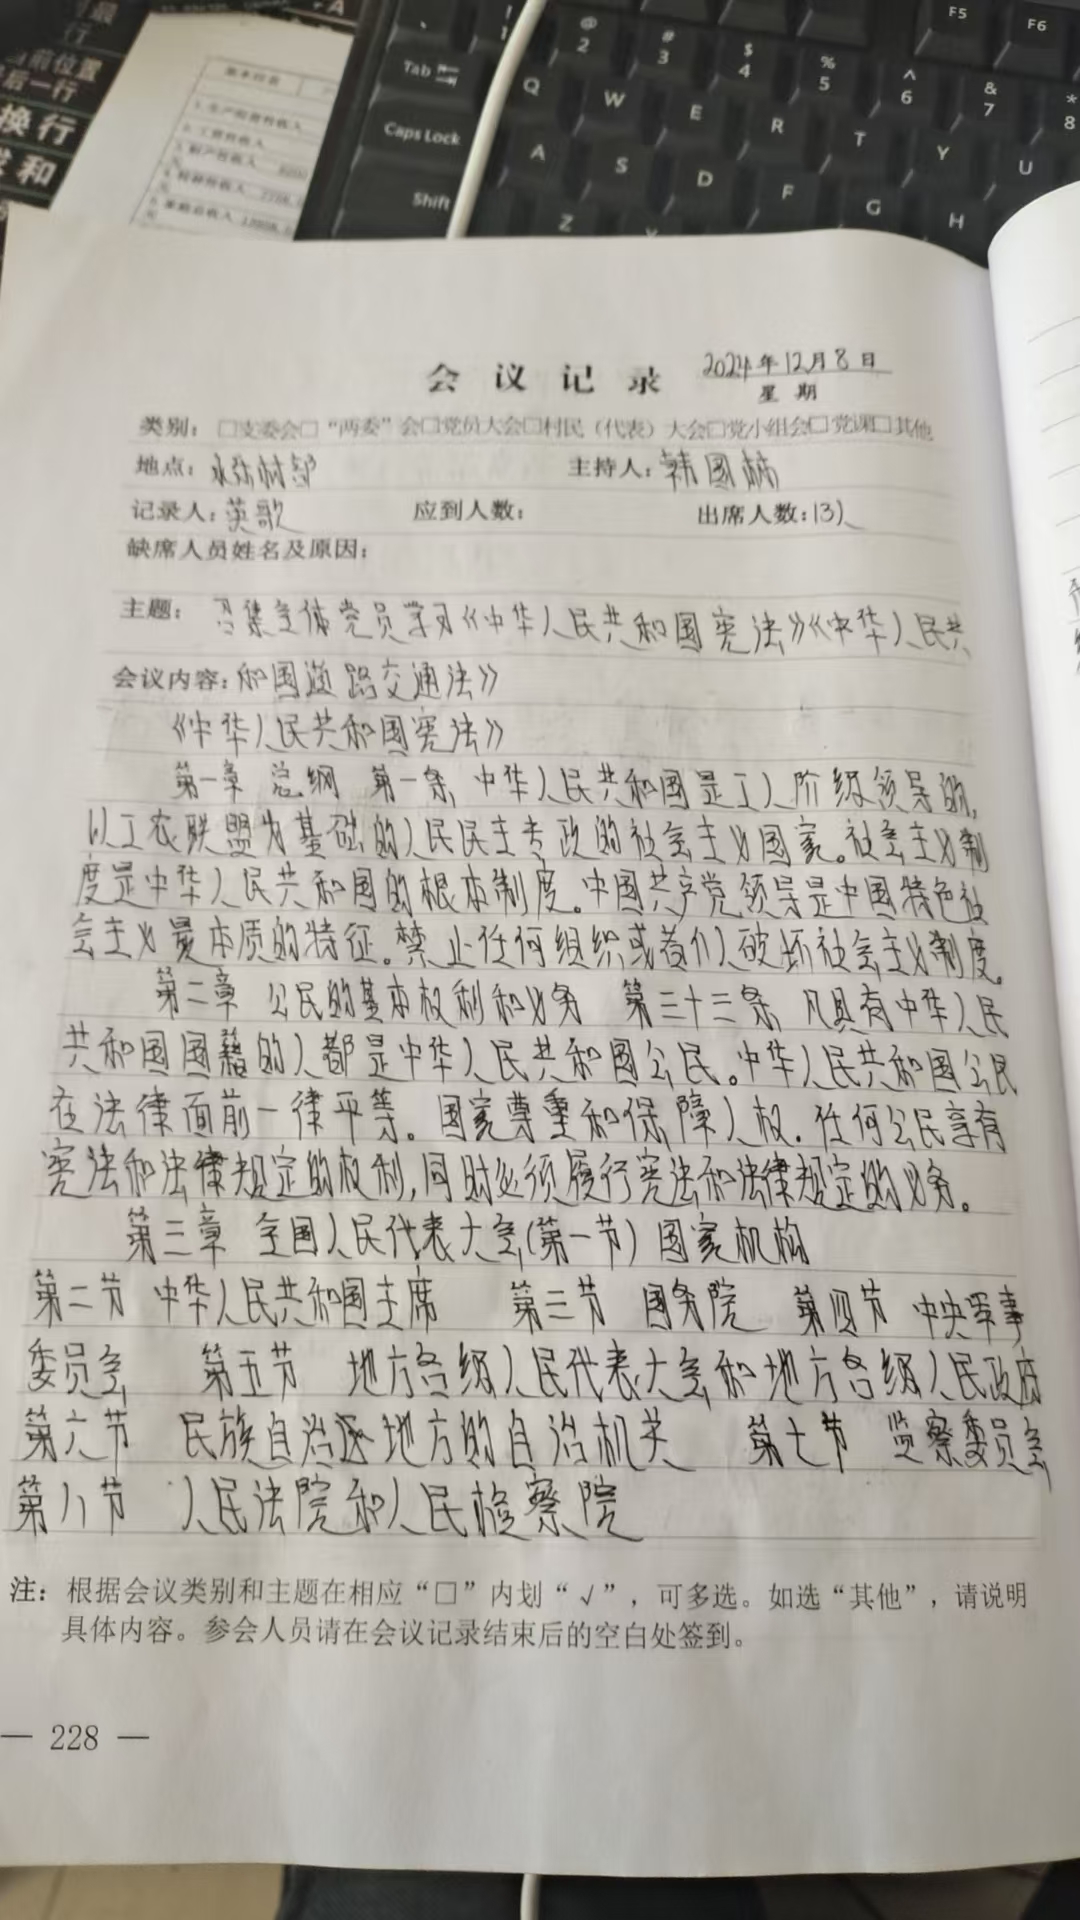 F5
F6
Tab
@ 2
# 3
$ 4
% 5
^ 6
& 7
* 8
Q W E R T Y U
Caps Lock
A S D F G H
Shift
Z
前位置
后一行
换行
和
会议记录
2024年12月8日
星期
类别：□支委会□“两委”会□党员大会□村民（代表）大会□党小组会□党课□其他
地点：永弥村部 主持人：韩国林
记录人：英歌 应到人数： 出席人数：13人
缺席人员姓名及原因：
主题：召集全体党员学习《中华人民共和国宪法》《中华人民共
会议内容：和国道路交通法》
《中华人民共和国宪法》
第一章 总纲 第一条 中华人民共和国是工人阶级领导的，
以工农联盟为基础的人民民主专政的社会主义国家。社会主义制
度是中华人民共和国的根本制度。中国共产党领导是中国特色社
会主义最本质的特征。禁止任何组织或者个人破坏社会主义制度。
第二章 公民的基本权利和义务 第三十三条 凡具有中华人民
共和国国籍的人都是中华人民共和国公民。中华人民共和国公民
在法律面前一律平等。国家尊重和保障人权。任何公民享有
宪法和法律规定的权利，同时必须履行宪法和法律规定的义务。
第三章 全国人民代表大会(第一节) 国家机构
第二节 中华人民共和国主席 第三节 国务院 第四节 中央军事
委员会 第五节 地方各级人民代表大会和地方各级人民政府
第六节 民族自治区地方的自治机关 第七节 监察委员会
第八节 人民法院和人民检察院
注：根据会议类别和主题在相应“□”内划“√”，可多选。如选“其他”，请说明
具体内容。参会人员请在会议记录结束后的空白处签到。
— 228 —